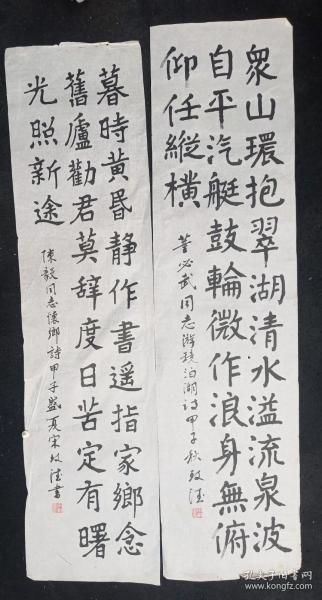 眾山環抱翠湖清水溢流泉波
自平汽艇鼓輪微作浪身無俯
仰任縱橫
董必武同志游鏡泊湖詩甲子秋政達
暮時黃昏靜作書遥指家鄉念
舊廬勸君莫辭度日苦定有曙
光照新途
陳毅同志懷鄉詩甲子盛夏宋政達書
孔夫子旧书网